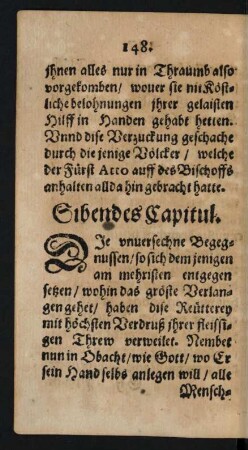 148.
jhnen alles nur in Thraumb also
vorgekomben / wouer sie nit Köst-
liche belohnungen jhrer gelaisten
Hilff in Handen gehabt hetten.
Vnnd dise Verzuckung geschache
durch die jenige Völcker / welche
der Fürst Atto auff des Bischoffs
anhalten allda hin gebracht hatte.
Sibendes Capitul.
DJe vnuersechne Begeg-
nussen / so sich dem jenigen
am mehristen entgegen
setzen / wohin das gröste Verlan-
gen gehet / haben dise Reütterey
mit höchsten Verdruß jhrer fleissi-
gen Threw verweilet. Nembet
nun in Obacht / wie Gott / wo Er
sein Hand selbs anlegen will / alle
Mensch-